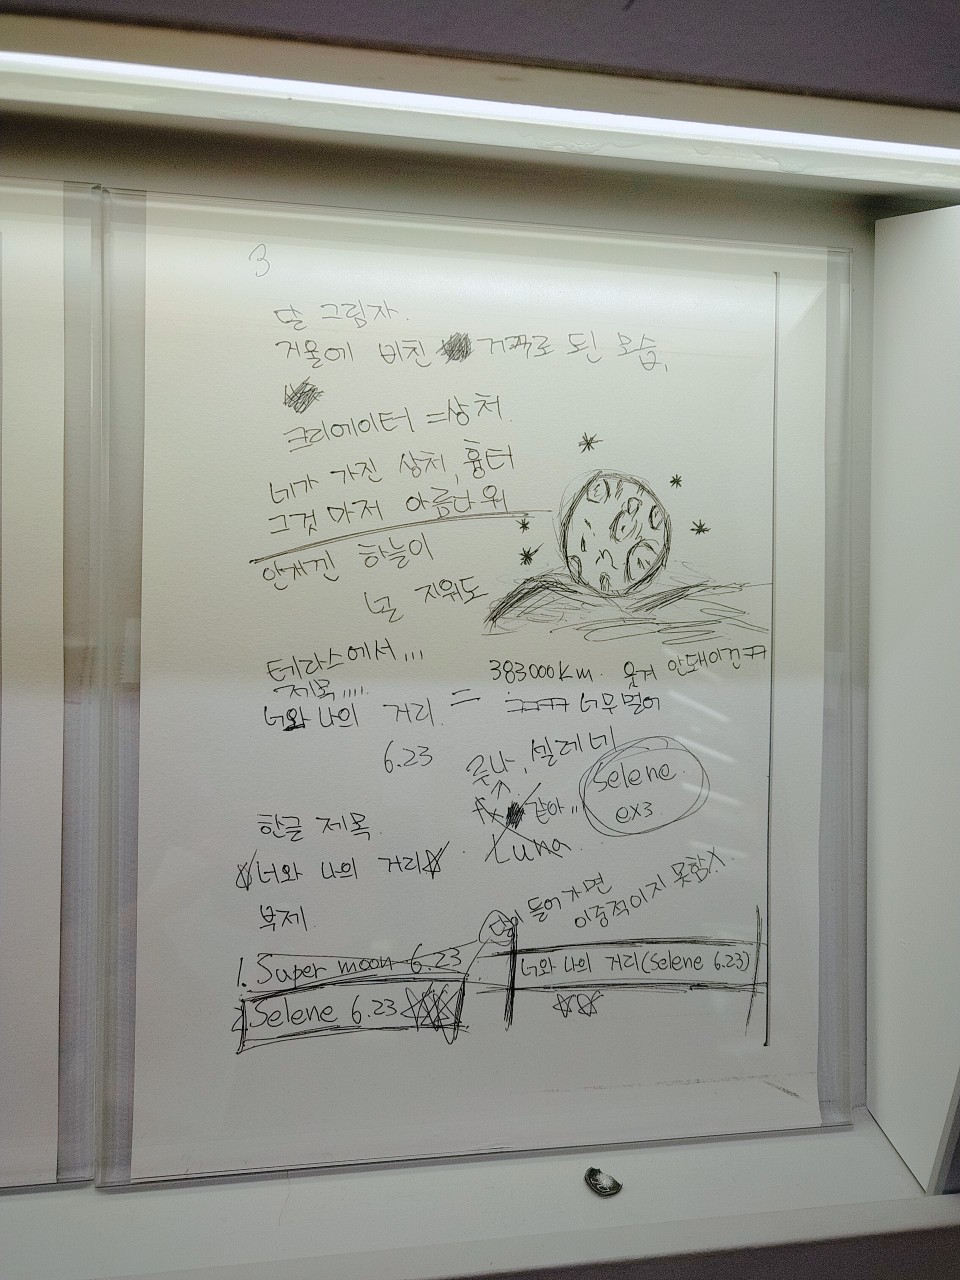 3
달 그림자.
거울에 비친 거꾸로 된 모습,
크리에이터 = 상처.
네가 가진 상처, 흉터
그것 마저 아름다워
안개낀 하늘이
널 지워도
테라스에서...
제목....
너와 나의 거리. = 383000km. 웃겨 안돼이건ㅋㅋ
ㅋㅋㅋㅋ 너무멀어
6.23
루나, 셀레네
같아...
Luna
Selene
ex3.
한글 제목.
☆너와 나의 거리☆
부제.
달이 들어가면
이중적이지 못함X.
1. Super moon 6.23
2. Selene 6.23 ☆☆☆
너와 나의 거리(Selene 6.23)
☆☆